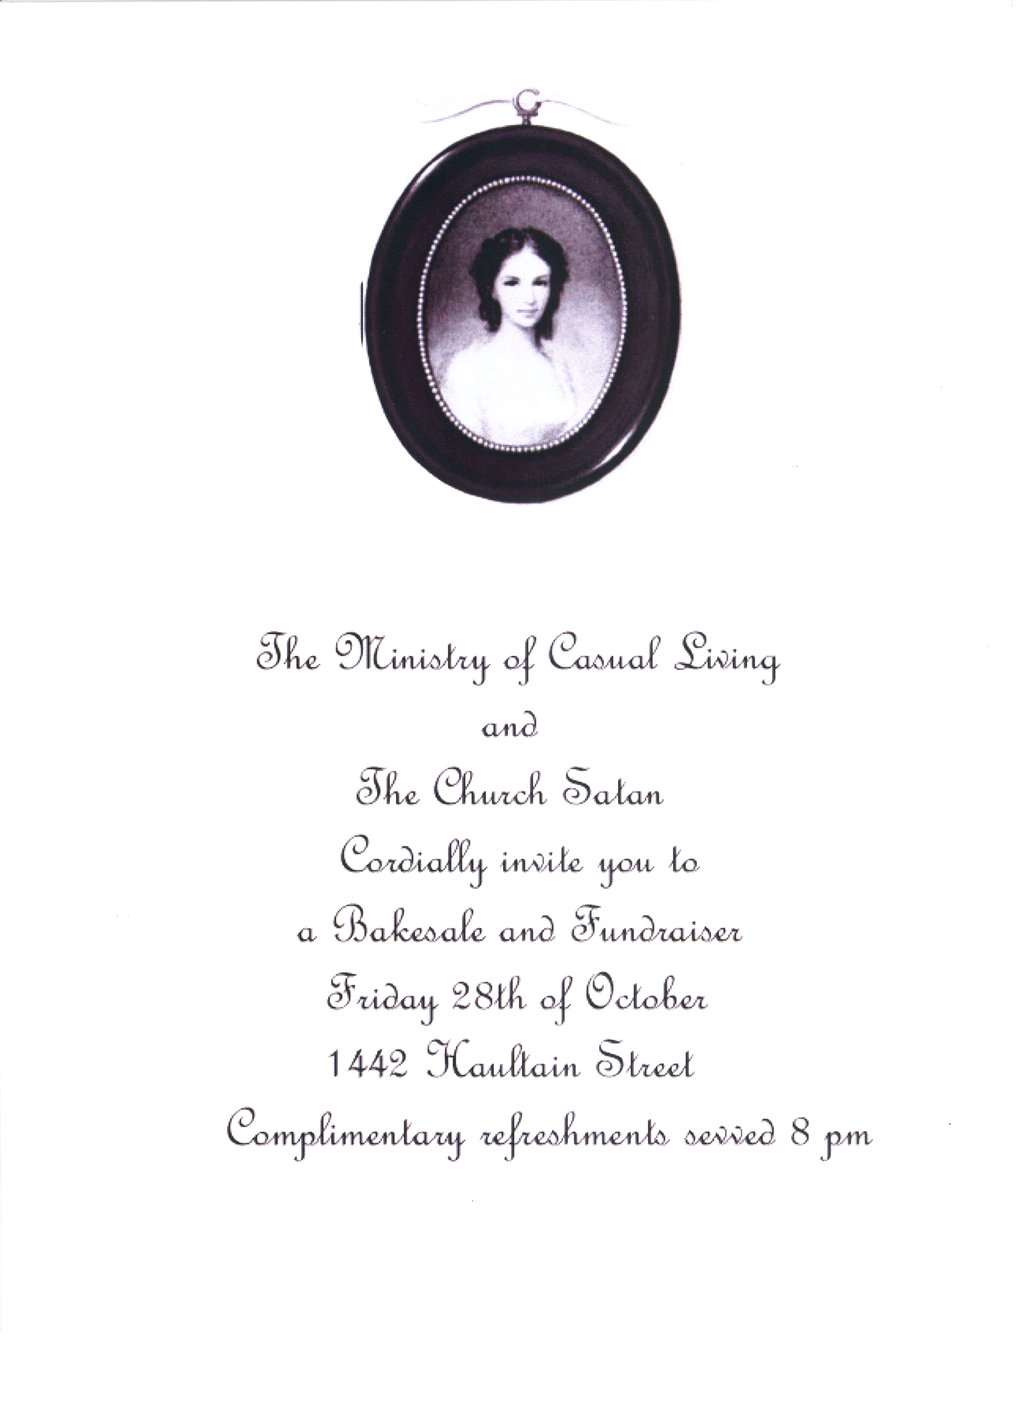 The Ministry of Casual Living
and
The Church Satan
Cordially invite you to
a Bakesale and Fundraiser
Friday 28th of October
1442 Haultain Street
Complimentary refreshments sevved 8 pm